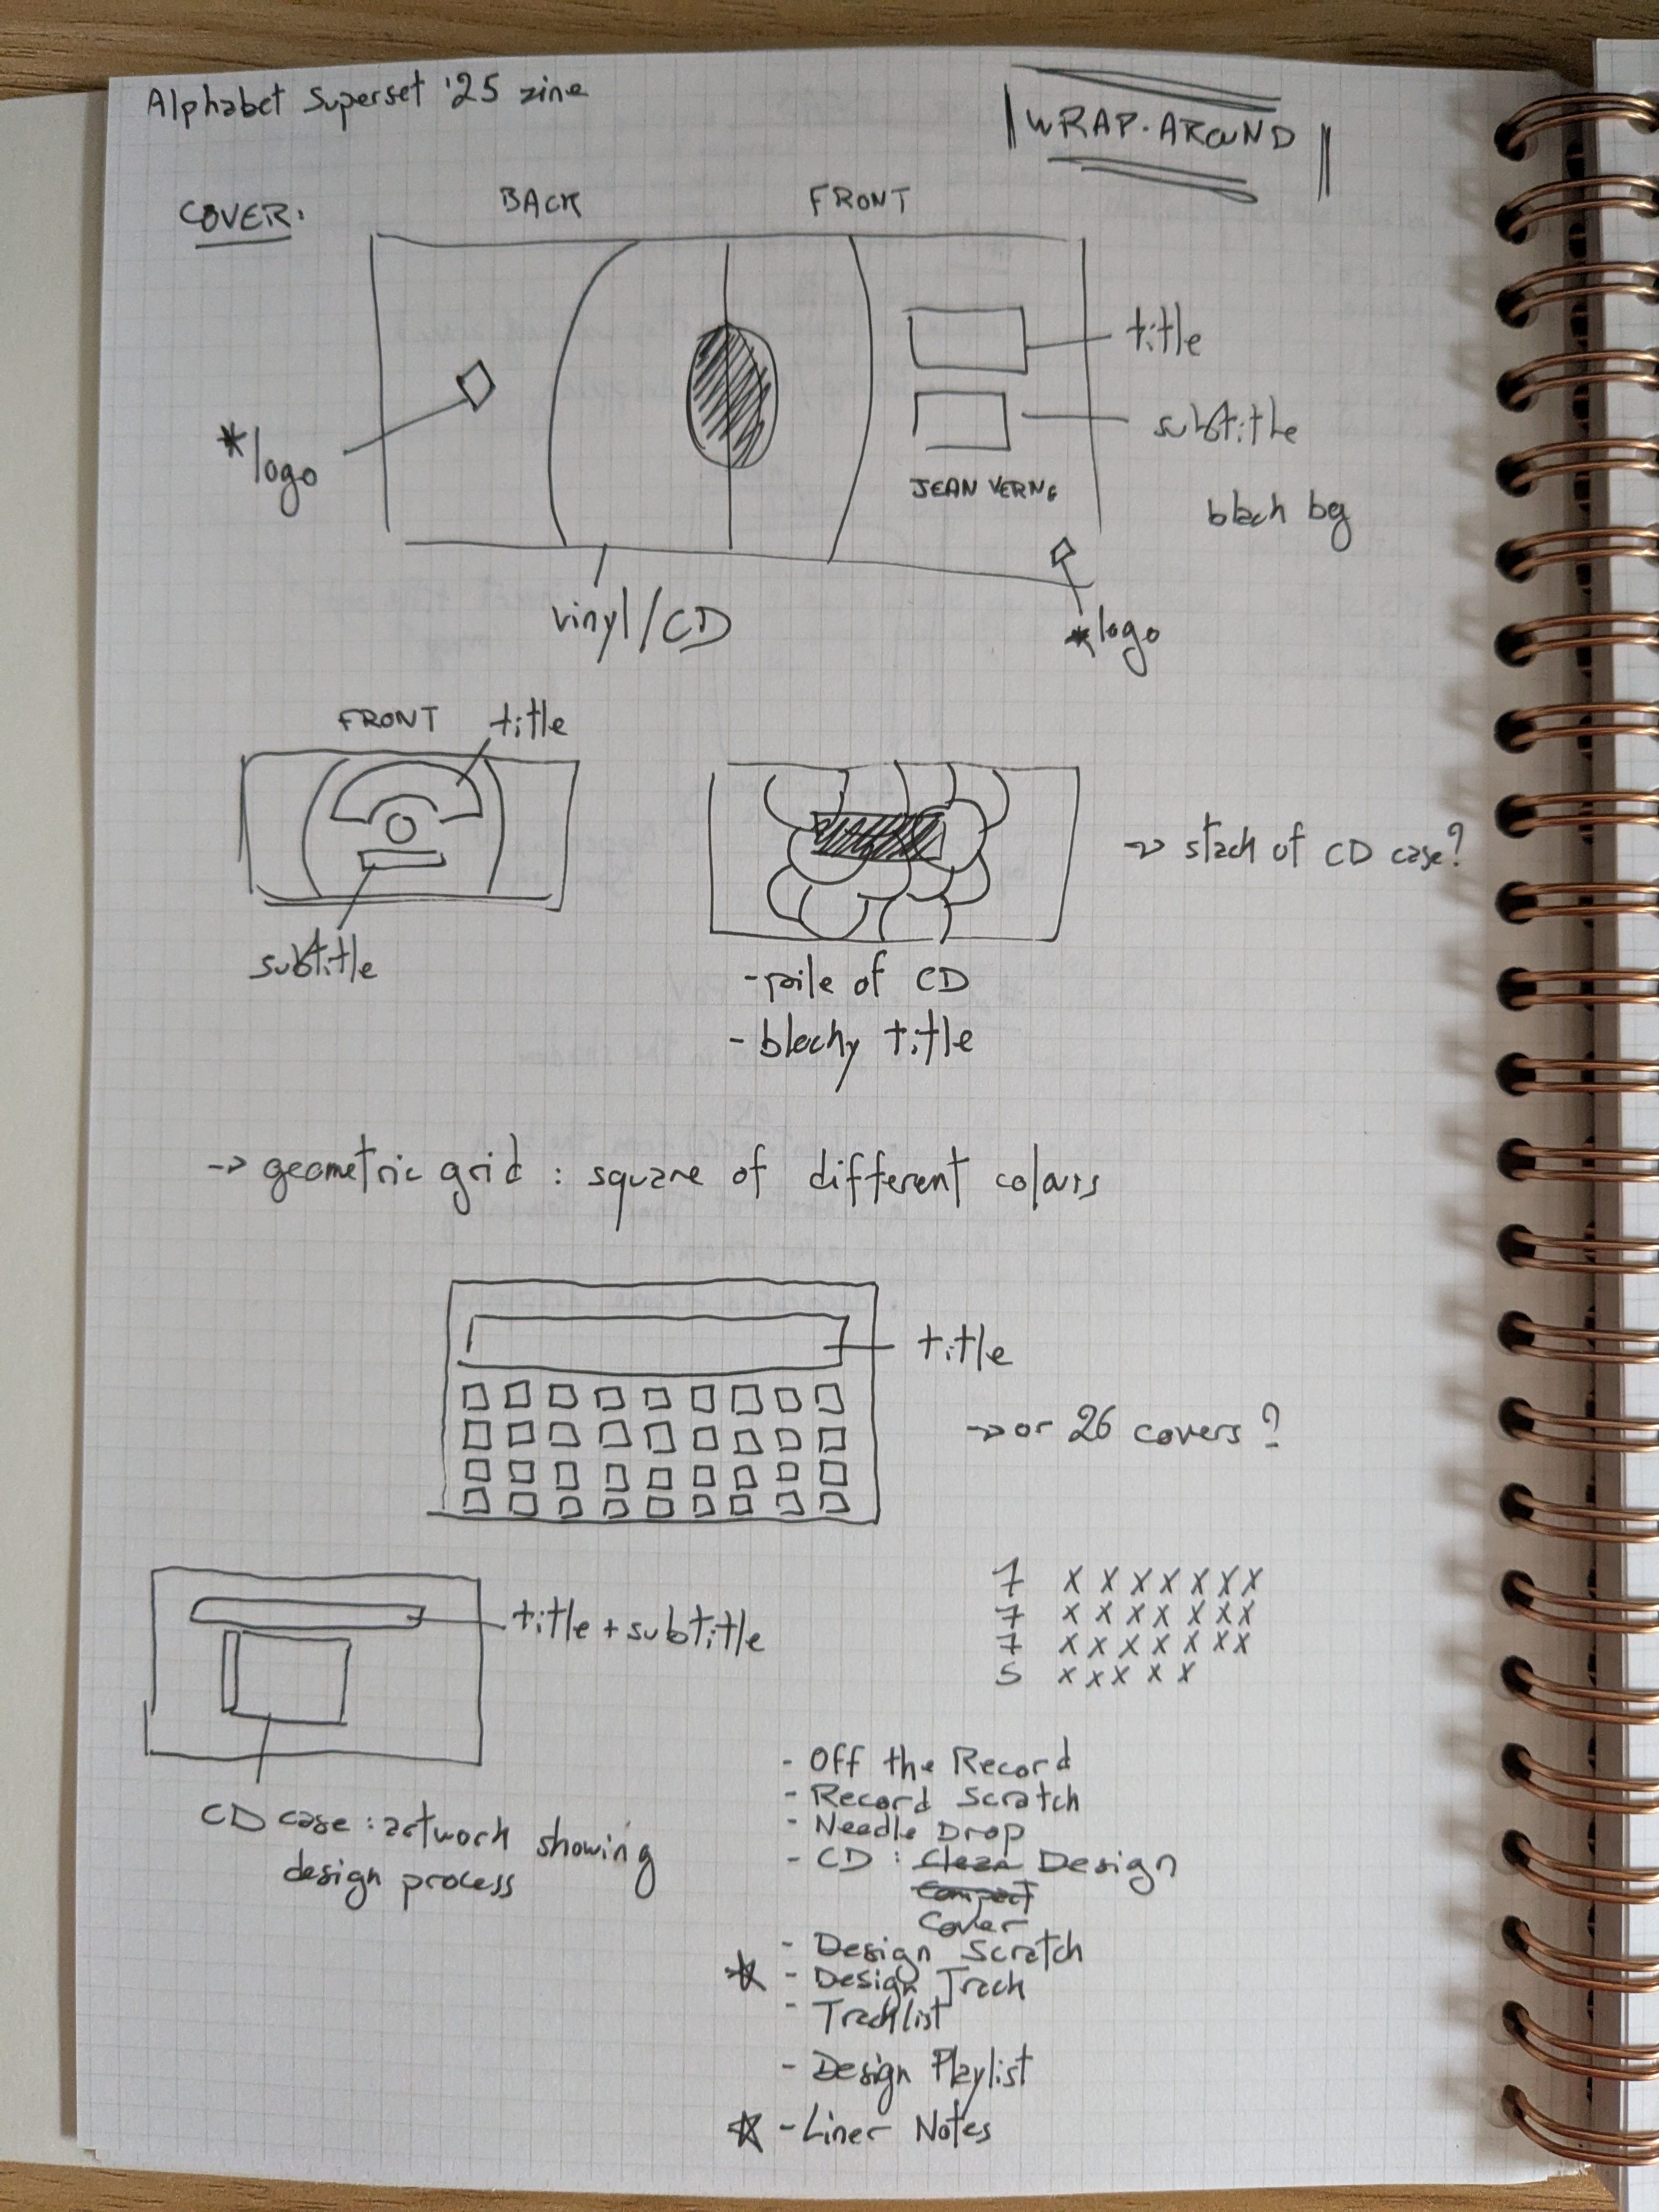 Alphabet Superset '25 zine
WRAP-AROUND
COVER:
BACK
FRONT
title
subtitle
JEAN VERNE
black bg
*logo
*logo
vinyl/CD
FRONT
title
subtitle
-> stack of CD case?
- pile of CD
- blocky title
-> geometric grid : square of different colours
title
-> or 26 covers?
title + subtitle
7 x x x x x x x
7 x x x x x x x
7 x x x x x x x
5 x x x x x
CD case : artwork showing
design process
- Off the Record
- Record Scratch
- Needle Drop
- CD : Clean Design
Compact
Cover
- Design Scratch
- Design Track
- Tracklist
- Design Playlist
- Liner Notes